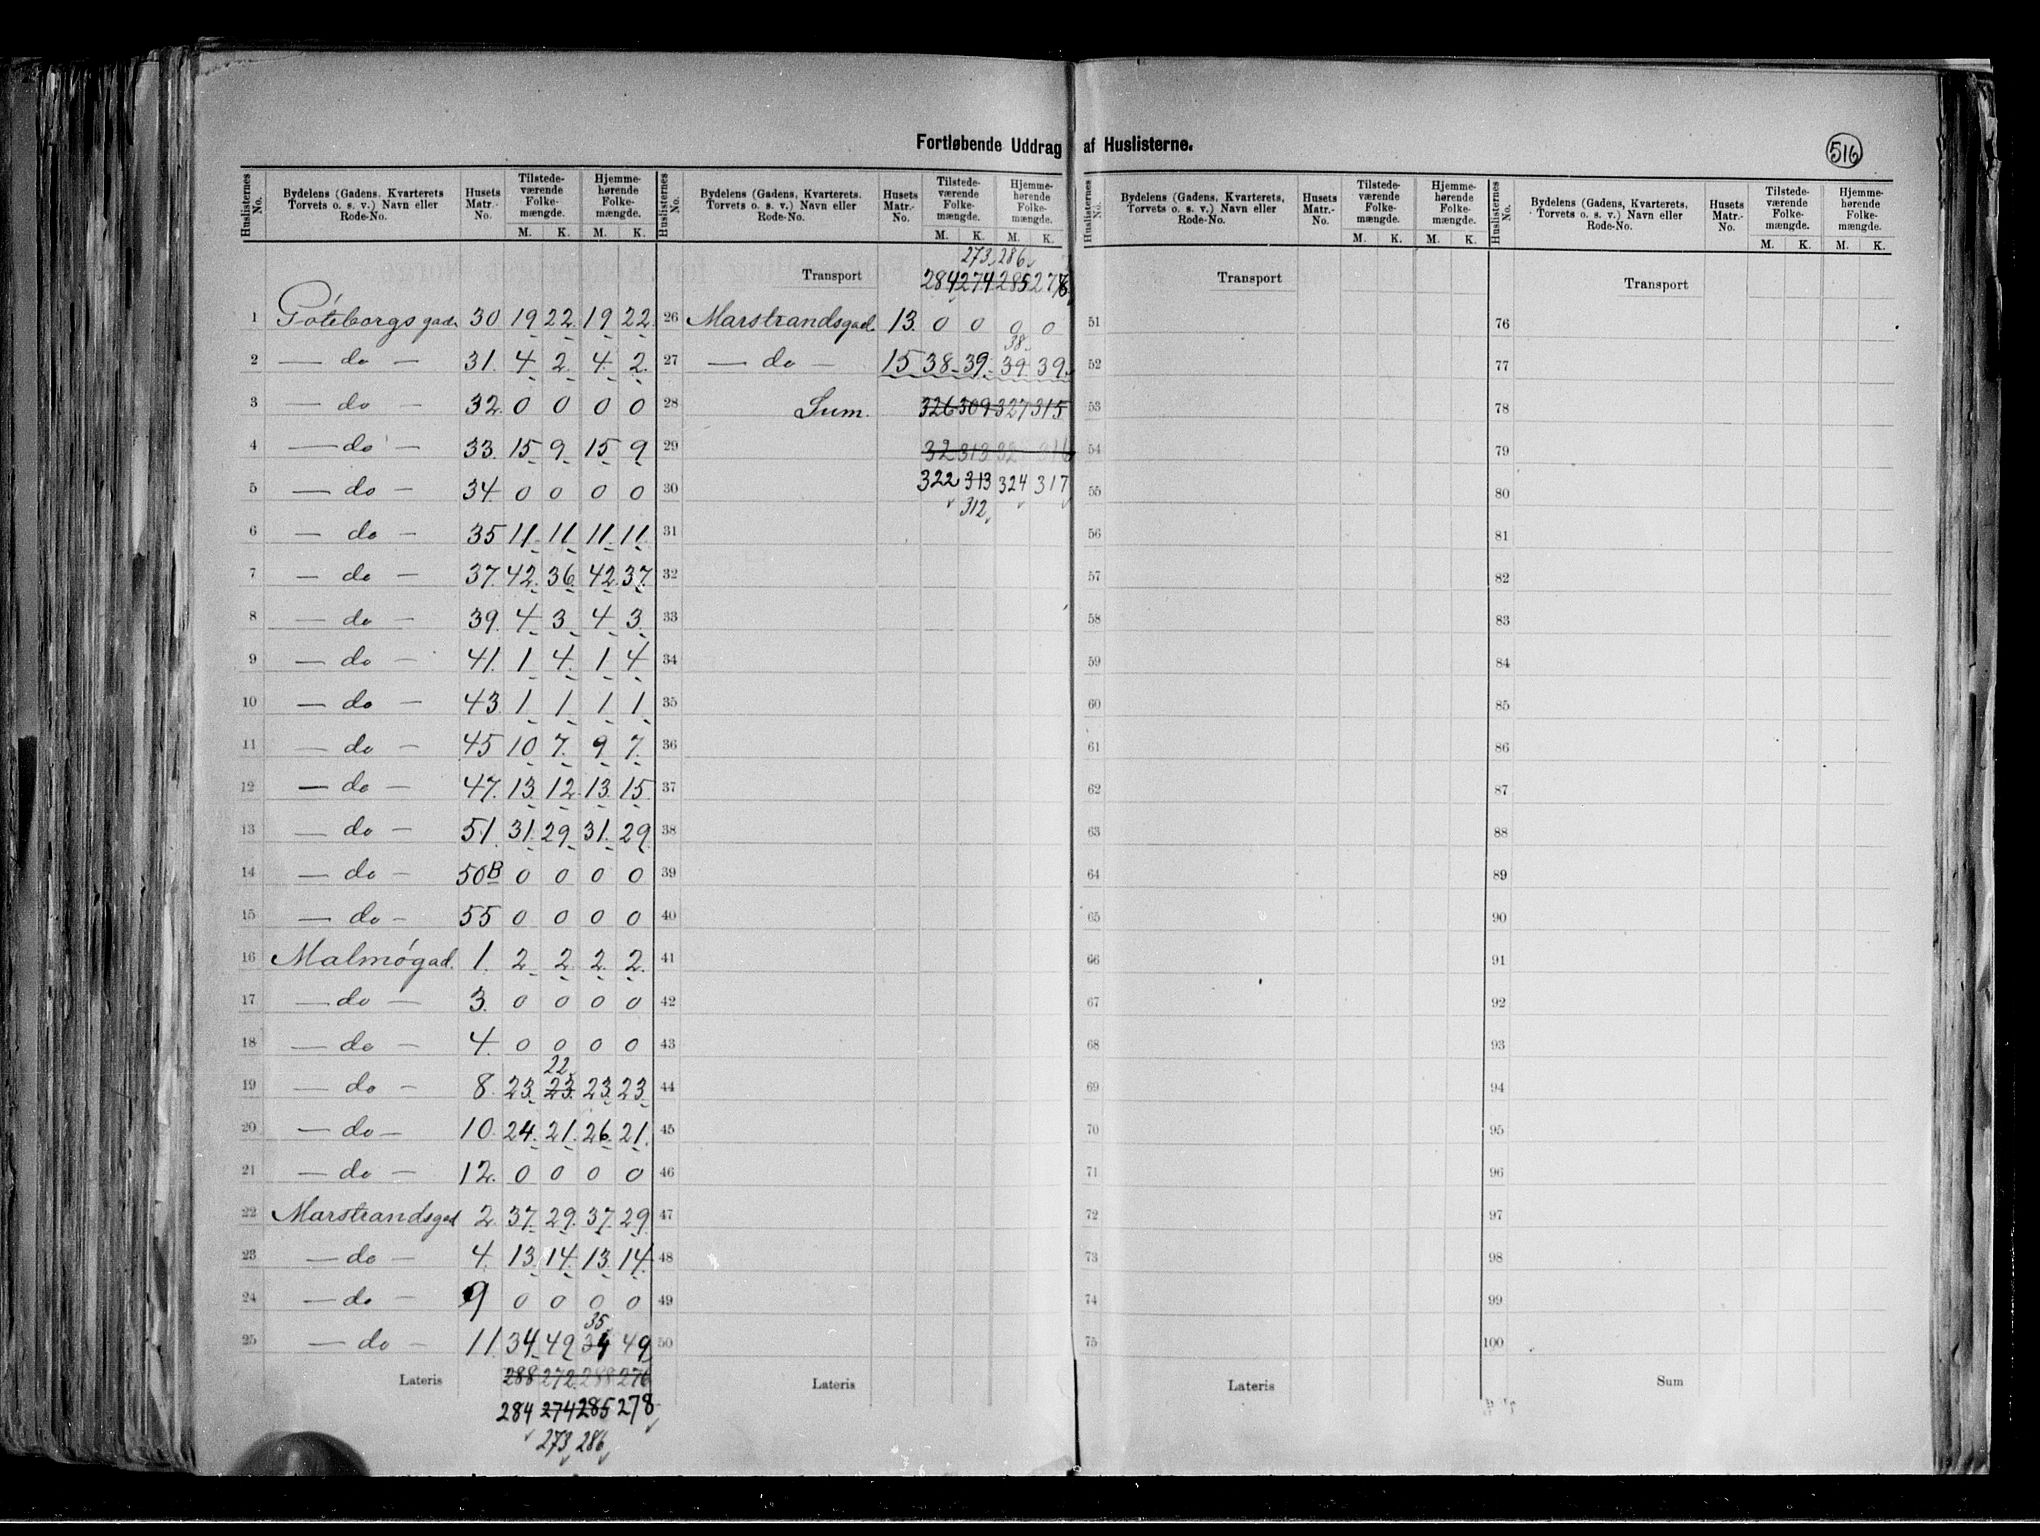 Fortløbende Uddrag af Huslisterne.
516
Huslisternes No. | Bydelens (Gadens, Kvarterets Torvets o. s. v.) Navn eller Rode-No. | Husets Matr.-No. | Tilstedeværende Folkemængde. M. K. | Hjemmehørende Folkemængde. M. K.
1 Göteborgsgad. 30 19 22 19 22
2 — do — 31. 4 2 4 2
3 — do — 32 0 0 0 0
4 — do — 33. 15 9 15 9
5 — do — 34 0 0 0 0
6 — do — 35 11 11 11 11
7 — do — 37. 42 36 42 37
8 — do — 39. 4 3 4 3
9 — do — 41. 1 4 1 4
10 — do — 43 1 1 1 1
11 — do — 45 10 7 9 7
12 — do — 47. 13 12 13 15
13 — do — 51. 31 29 31 29
14 — do — 50B 0 0 0 0
15 — do — 55 0 0 0 0
16 Malmögad. 1. 2 2 2 2
17 — do — 3. 0 0 0 0
18 — do — 4. 0 0 0 0
22
19 — do — 8. 23 23 23 23
20 — do — 10. 24 21 26 21
21 — do — 12. 0 0 0 0
22 Marstrandsgad 2 37 29 37 29
23 — do — 4. 13 14 13 14
24 — do — 9 0 0 0 0
35
25 — do — 11 34 49 34 49
Lateris 288 272 288 276
284 274 285 278
273 286
Huslisternes No. | Bydelens (Gadens, Kvarterets Torvets o. s. v.) Navn eller Rode-No. | Husets Matr.-No. | Tilstedeværende Folkemængde. M. K. | Hjemmehørende Folkemængde. M. K.
273 286
Transport 284 274 285 278
26 Marstrandsgad. 13. 0 0 0 0
38
27 — do — 15 38 39 39 39
28 Sum. 326 309 327 315
29 32 313 32
30 322 313 324 317
312
31
32
33
34
35
36
37
38
39
40
41
42
43
44
45
46
47
48
49
50
Lateris
Huslisternes No. | Bydelens (Gadens, Kvarterets, Torvets o. s. v.) Navn eller Rode-No. | Husets Matr.-No. | Tilstedeværende Folkemængde. M. K. | Hjemmehørende Folkemængde. M. K.
Transport
51
52
53
54
55
56
57
58
59
60
61
62
63
64
65
66
67
68
69
70
71
72
73
74
75
Lateris
Huslisternes No. | Bydelens (Gadens, Kvarterets, Torvets o. s. v.) Navn eller Rode-No. | Husets Matr.-No. | Tilstedeværende Folkemængde. M. K. | Hjemmehørende Folkemængde. M. K.
Transport
76
77
78
79
80
81
82
83
84
85
86
87
88
89
90
91
92
93
94
95
96
97
98
99
100
Sum